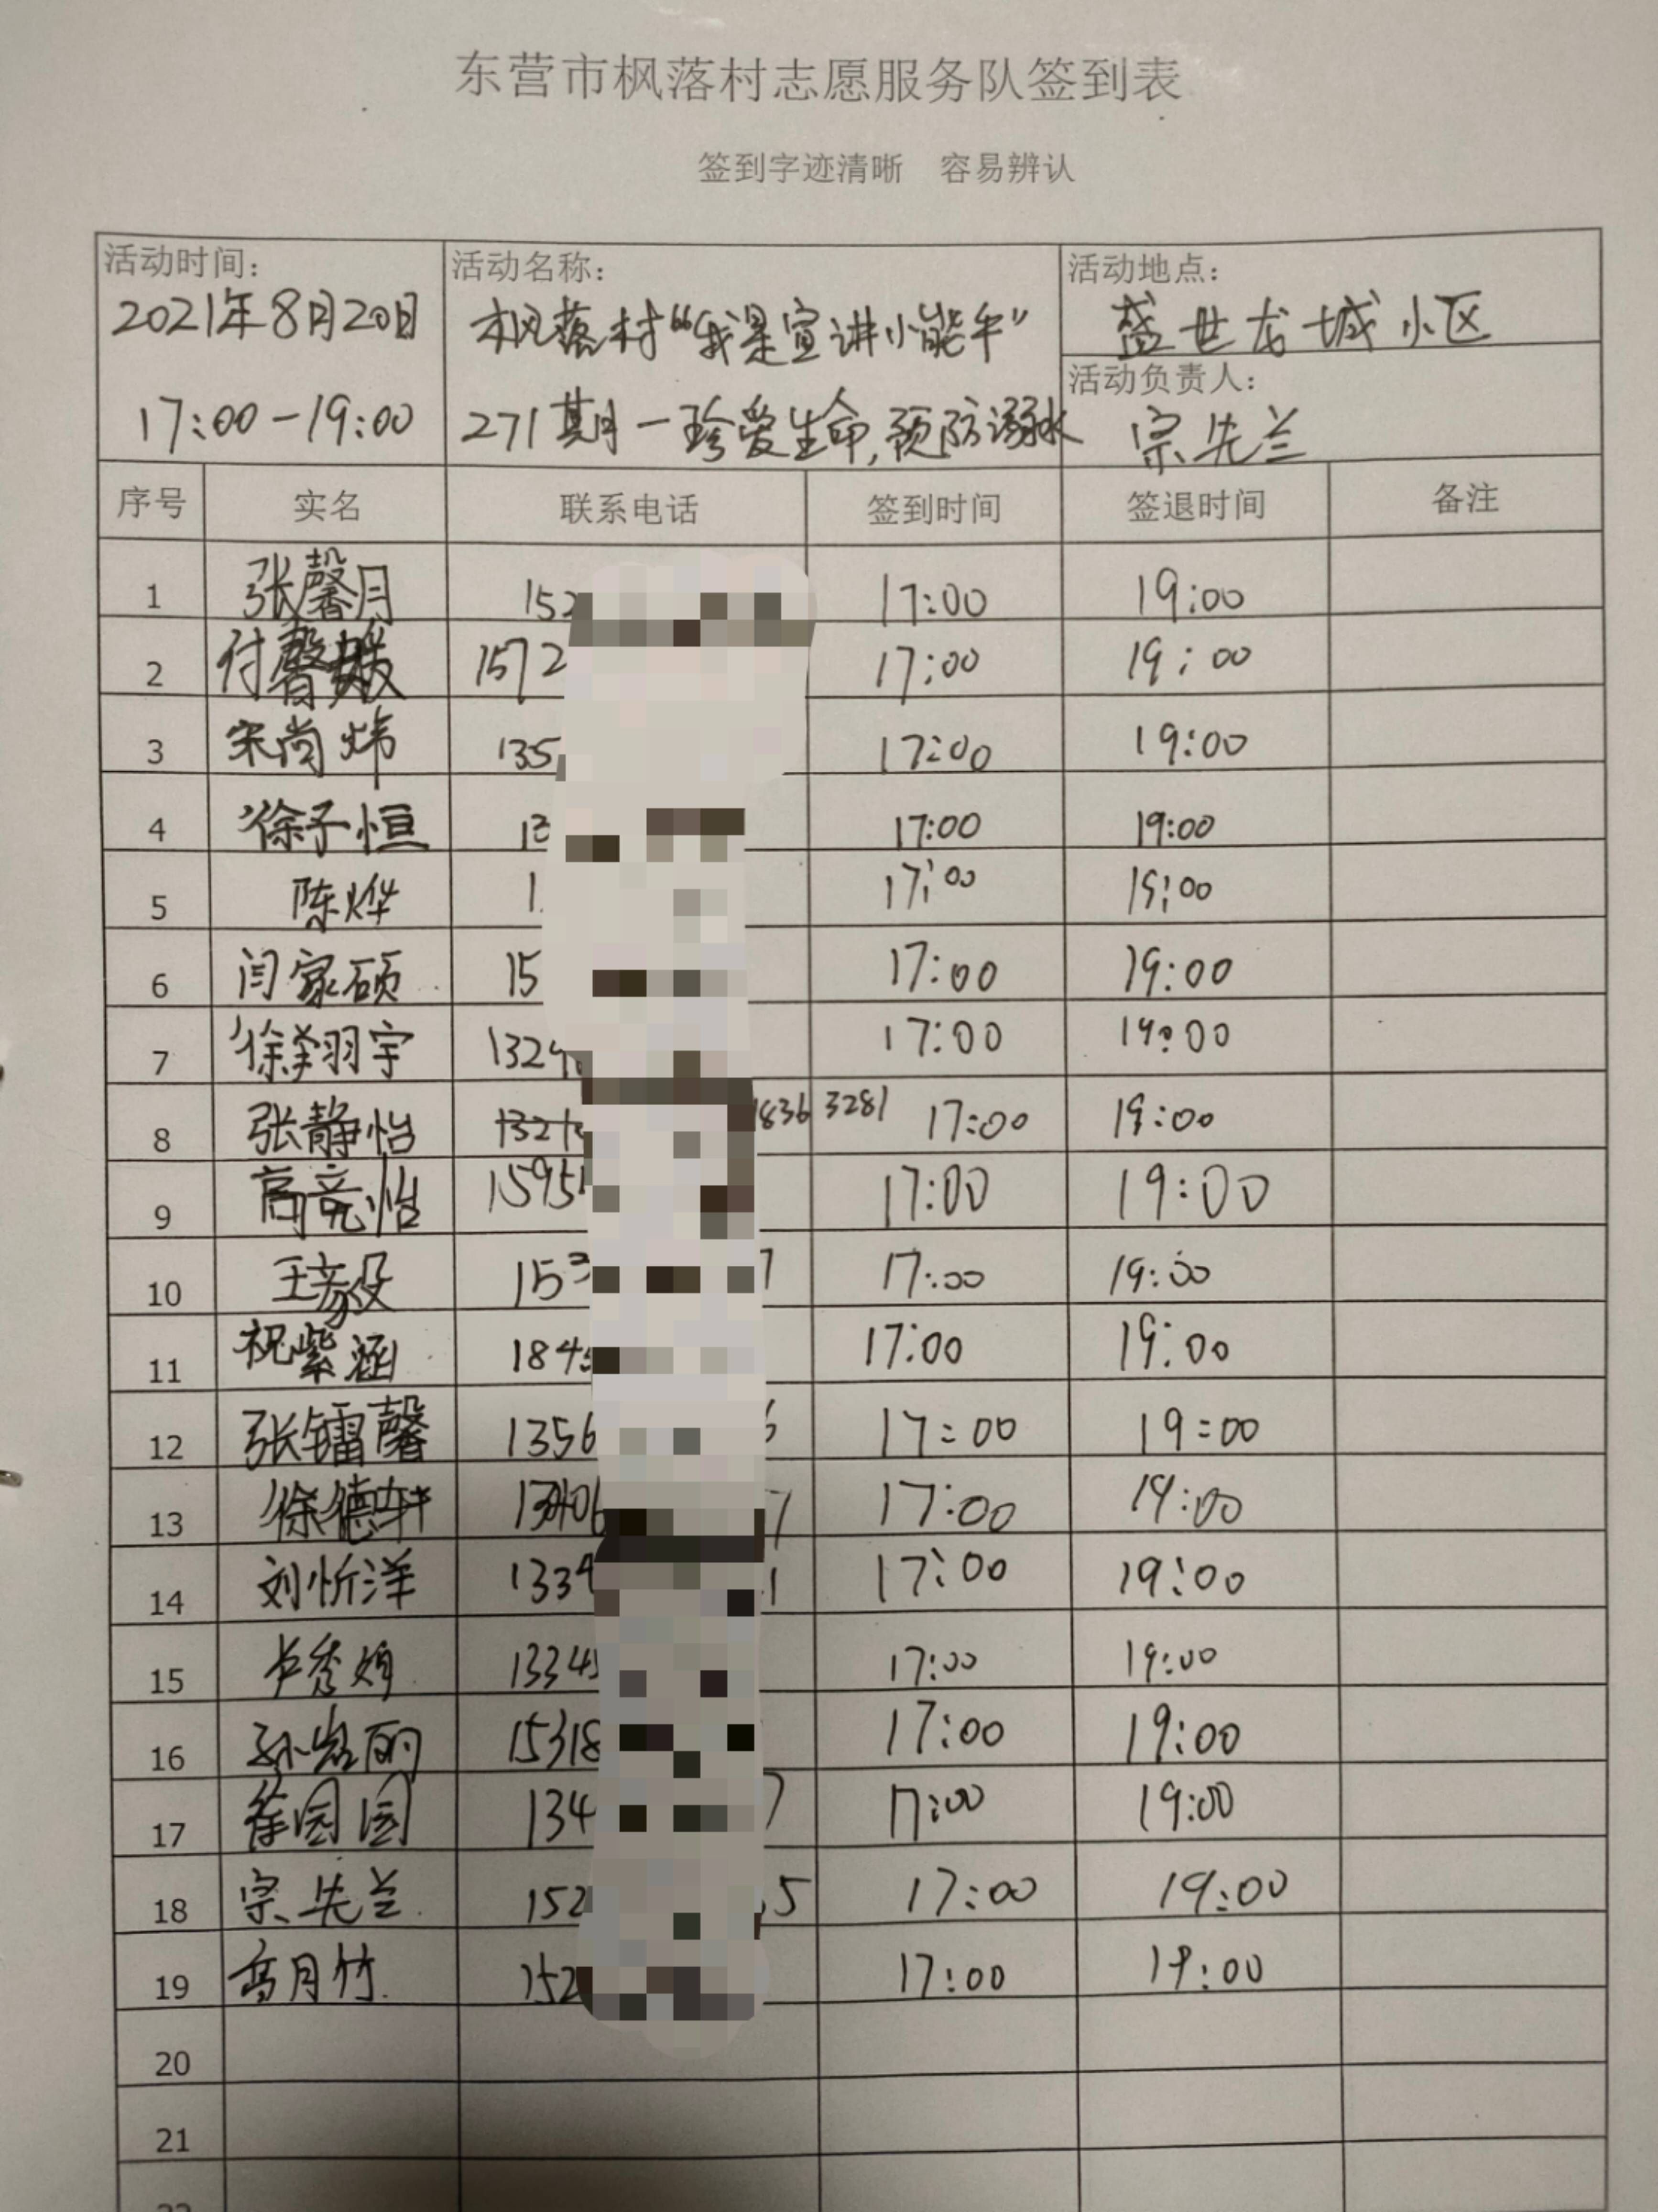 东营市枫落村志愿服务队签到表
签到字迹清晰 容易辨认
活动时间: 活动名称: 活动地点:
2021年8月20日 枫落村“我是宣讲小能手” 盛世龙城小区
活动负责人:
17:00-19:00 271期-珍爱生命,预防溺水 宗先兰
序号 实名 联系电话 签到时间 签退时间 备注
1 张馨月 152 17:00 19:00
2 付馨媛 1572 17:00 19:00
3 宋尚炜 135 17:00 19:00
4 徐子恒 13 17:00 19:00
5 陈烨 1 17:00 19:00
6 闫家硕 15 17:00 19:00
7 徐翔宇 132 17:00 19:00
8 张静怡 1836 3281 17:00 19:00
9 高竞怡 1595 17:00 19:00
10 王毅 153 7 17:00 19:00
11 祝紫涵 184 17:00 19:00
12 张镭馨 1356 6 17:00 19:00
13 徐德轩 13406 7 17:00 19:00
14 刘忻洋 1334 1 17:00 19:00
15 卢秀娟 1334 17:00 19:00
16 孙岩丽 15318 17:00 19:00
17 崔园园 134 7 17:00 19:00
18 宗先兰 152 5 17:00 19:00
19 高月竹 152 17:00 19:00
20
21